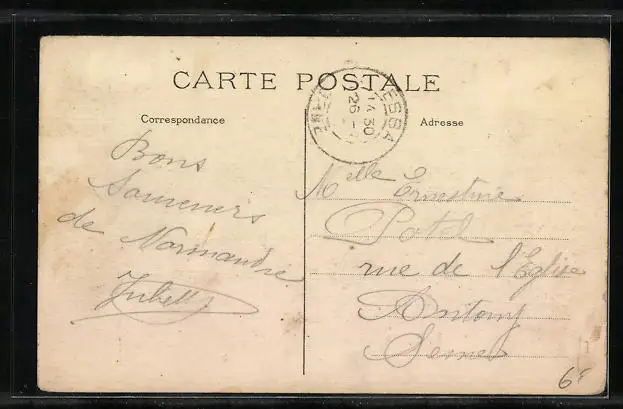 CARTE POSTALE
Correspondance
Adresse
14 30
26
Bons
Souvenirs
de Normandie
Melle Ernestine
Potel
rue de l'Eglise
Antony
Seine
6